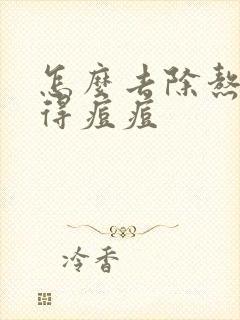 怎麼去除熬
得痘痘
冷香